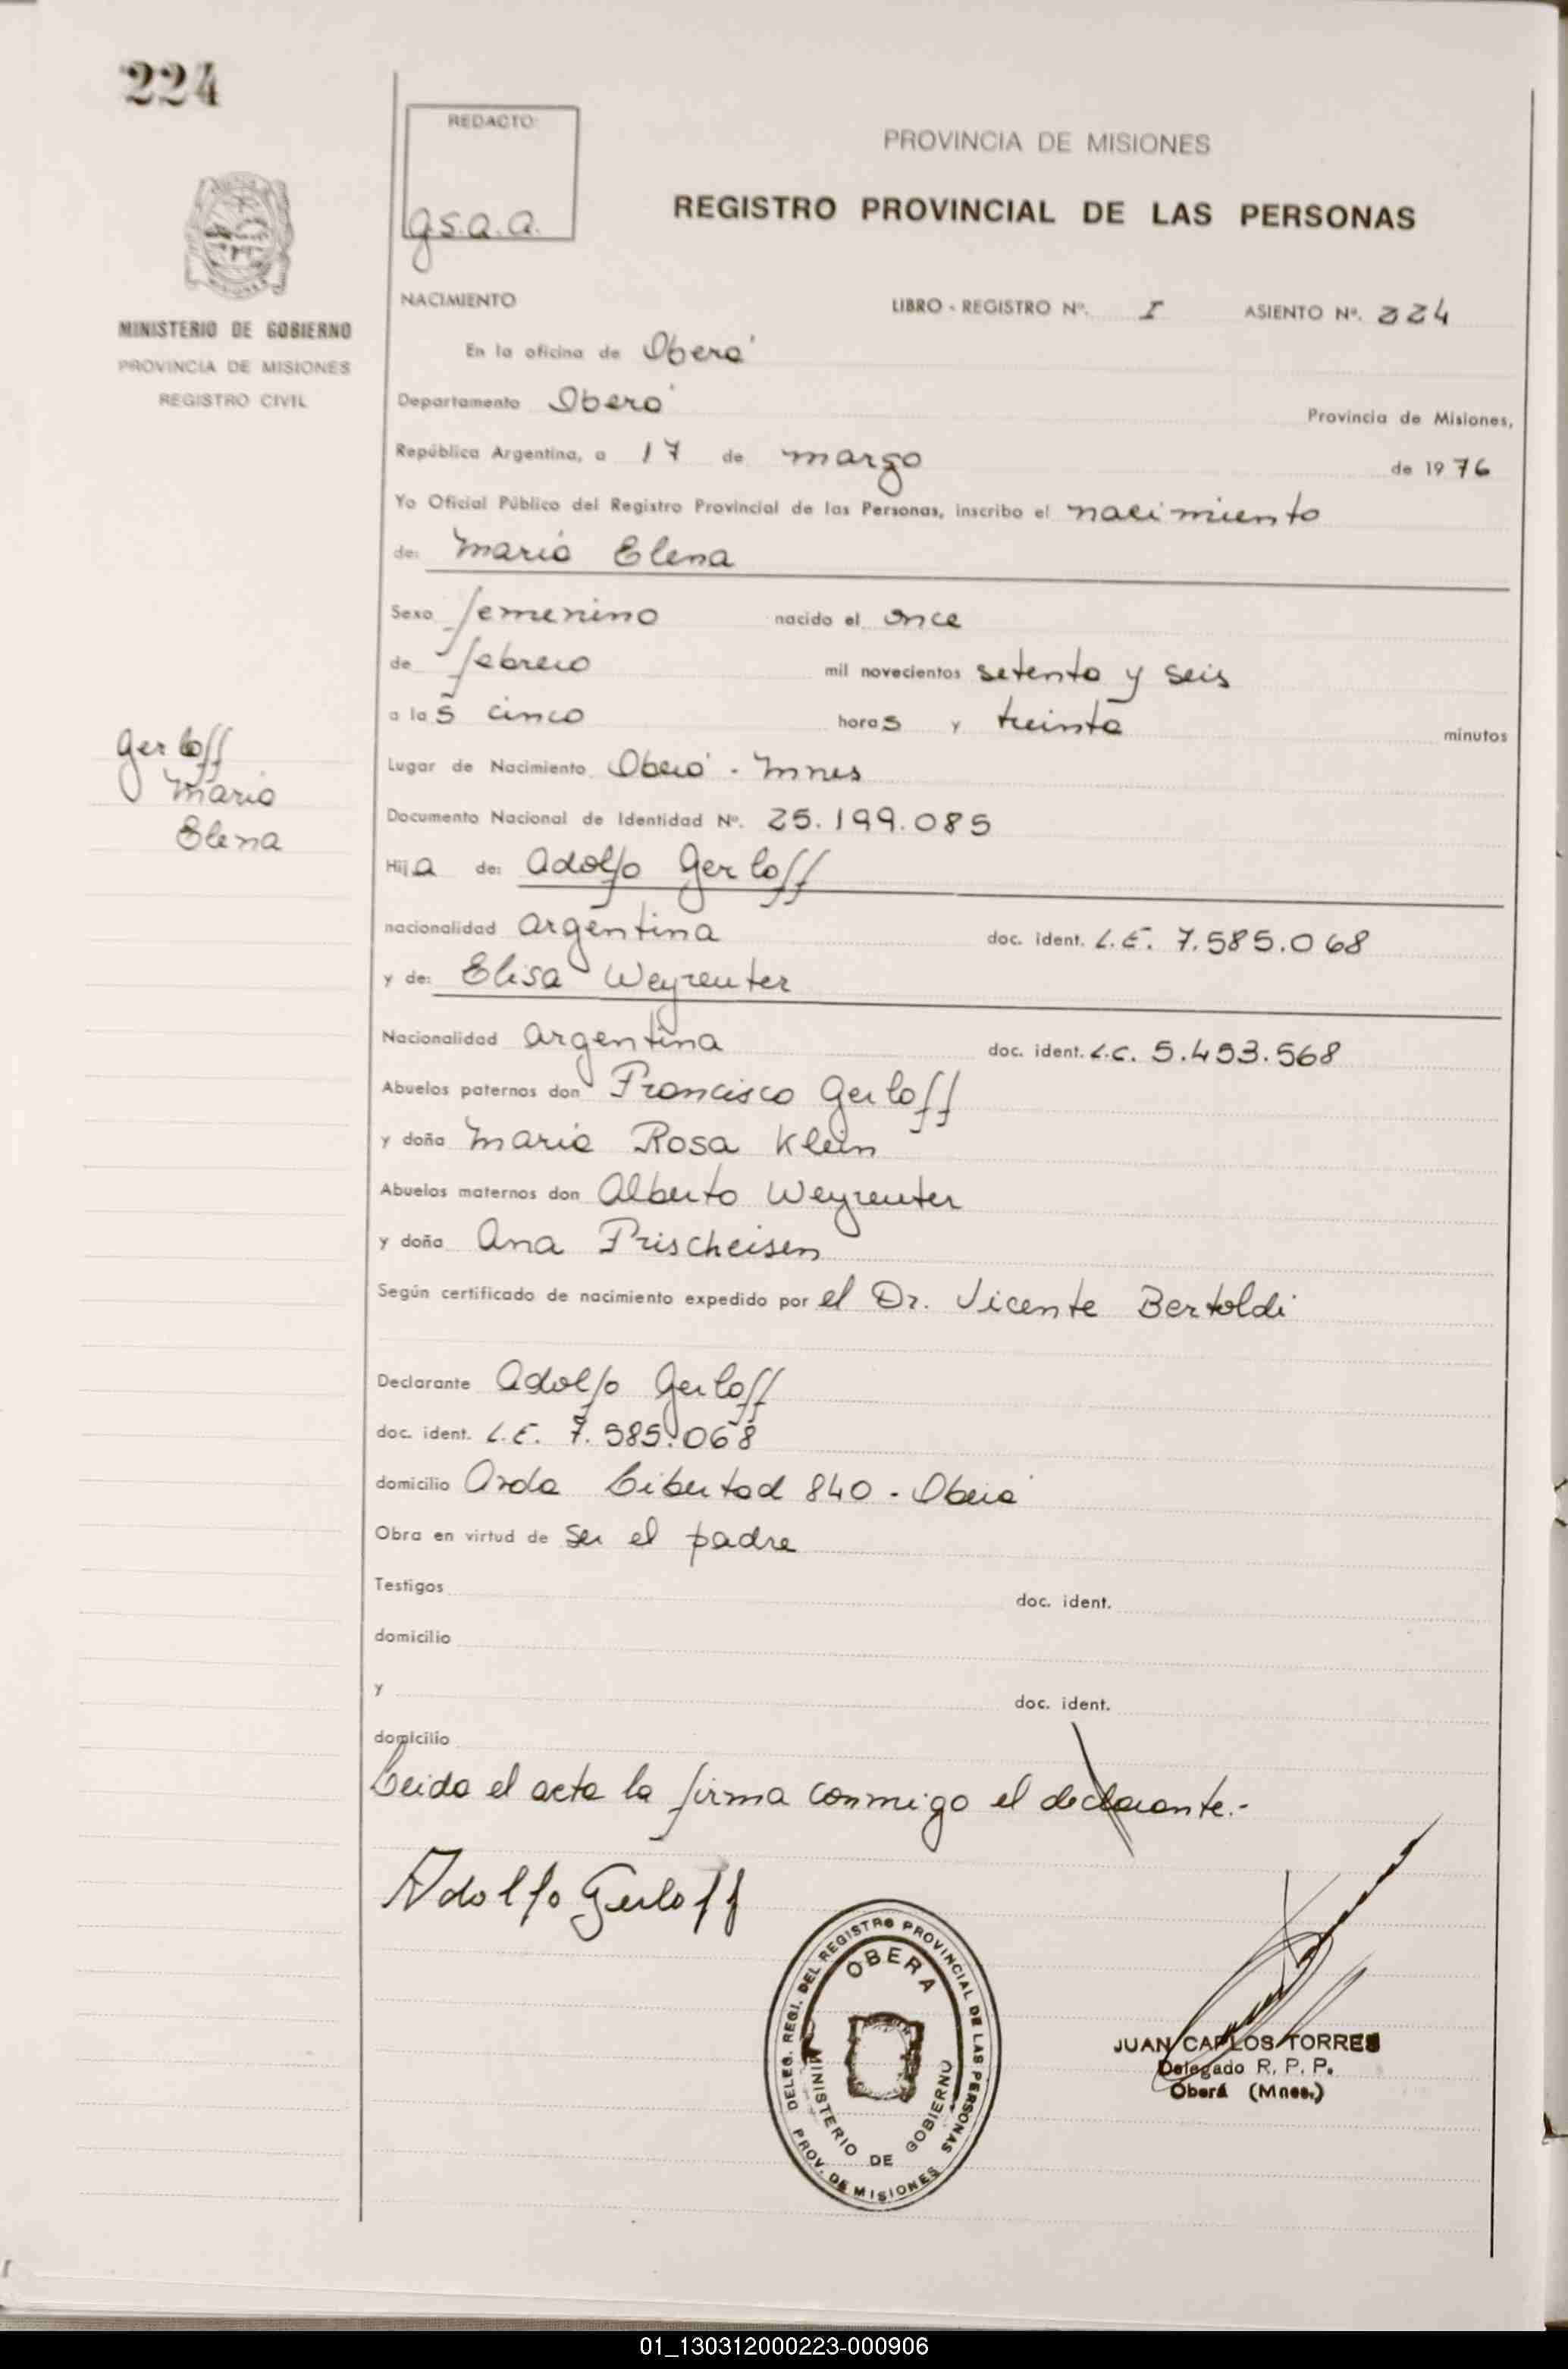 224
REDACTO:
g.s.a.a.
PROVINCIA DE MISIONES
REGISTRO PROVINCIAL DE LAS PERSONAS
MINISTERIO DE GOBIERNO
PROVINCIA DE MISIONES
REGISTRO CIVIL
NACIMIENTO LIBRO - REGISTRO Nº. I ASIENTO Nº. 224
En la oficina de Oberá
Departamento Oberá Provincia de Misiones,
República Argentina, a 17 de marzo de 1976
Yo Oficial Público del Registro Provincial de las Personas, inscribo el nacimiento
de: Maria Elena
Sexo femenino nacido el once
de febrero mil novecientos setenta y seis
a las cinco horas y treinta minutos
Gerloff
Maria
Elena
Lugar de Nacimiento Oberá - Mnes
Documento Nacional de Identidad Nº. 25.199.085
Hija de: Adolfo Gerloff
nacionalidad argentina doc. ident. L.E. 7.585.068
y de: Elisa Weyreuter
Nacionalidad argentina doc. ident. L.C. 5.453.568
Abuelos paternos don Francisco Gerloff
y doña Maria Rosa Klein
Abuelos maternos don Alberto Weyreuter
y doña Ana Frischeisen
Según certificado de nacimiento expedido por el Dr. Vicente Bertoldi
Declarante Adolfo Gerloff
doc. ident. L.E. 7.585.068
domicilio Avda Libertad 840 - Oberá
Obra en virtud de ser el padre
Testigos doc. ident.
domicilio
y doc. ident.
domicilio
Leida el acta la firma conmigo el declarante.-
Adolfo Gerloff
DELEG. REGI. DEL REGISTRO PROVINCIAL DE LAS PERSONAS
OBERA
MINISTERIO DE GOBIERNO
PROV. DE MISIONES
JUAN CARLOS TORRES
Delegado R. P. P.
Oberá (Mnes.)
01_130312000223-000906